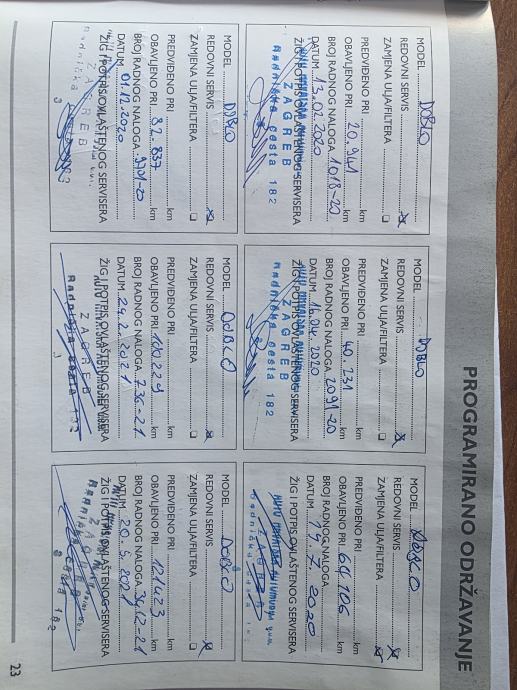 PROGRAMIRANO ODRŽAVANJE
MODEL DOBLO
REDOVNI SERVIS
ZAMJENA ULJA/FILTERA
PREDVIĐENO PRI km
OBAVLJENO PRI 20.941 km
BROJ RADNOG NALOGA 1018-20
DATUM 13.02.2020
ŽIG I POTPIS OVLAŠTENOG SERVISERA
ZAGREB
Radnička cesta 182
MODEL DOBLO
REDOVNI SERVIS
ZAMJENA ULJA/FILTERA
PREDVIĐENO PRI km
OBAVLJENO PRI 40.231 km
BROJ RADNOG NALOGA 2091-20
DATUM 16.04.2020
ŽIG I POTPIS OVLAŠTENOG SERVISERA
ZAGREB
Radnička cesta 182
MODEL DOBLO
REDOVNI SERVIS
ZAMJENA ULJA/FILTERA
PREDVIĐENO PRI km
OBAVLJENO PRI 64.106 km
BROJ RADNOG NALOGA
DATUM 19.7.2020
ŽIG I POTPIS OVLAŠTENOG SERVISERA
ZAGREB
MODEL DOBLO
REDOVNI SERVIS
ZAMJENA ULJA/FILTERA
PREDVIĐENO PRI km
OBAVLJENO PRI 82.837 km
BROJ RADNOG NALOGA
DATUM 01.12.2020
ŽIG I POTPIS OVLAŠTENOG SERVISERA
ZAGREB
MODEL DOBLO
REDOVNI SERVIS
ZAMJENA ULJA/FILTERA
PREDVIĐENO PRI km
OBAVLJENO PRI 100.229 km
BROJ RADNOG NALOGA 736-21
DATUM 24.2.2021
ŽIG I POTPIS OVLAŠTENOG SERVISERA
ZAGREB
Radnička cesta 182
MODEL DOBLO
REDOVNI SERVIS
ZAMJENA ULJA/FILTERA
PREDVIĐENO PRI km
OBAVLJENO PRI 121423 km
BROJ RADNOG NALOGA
DATUM 20.5.2021
ŽIG I POTPIS OVLAŠTENOG SERVISERA
ZAGREB
23